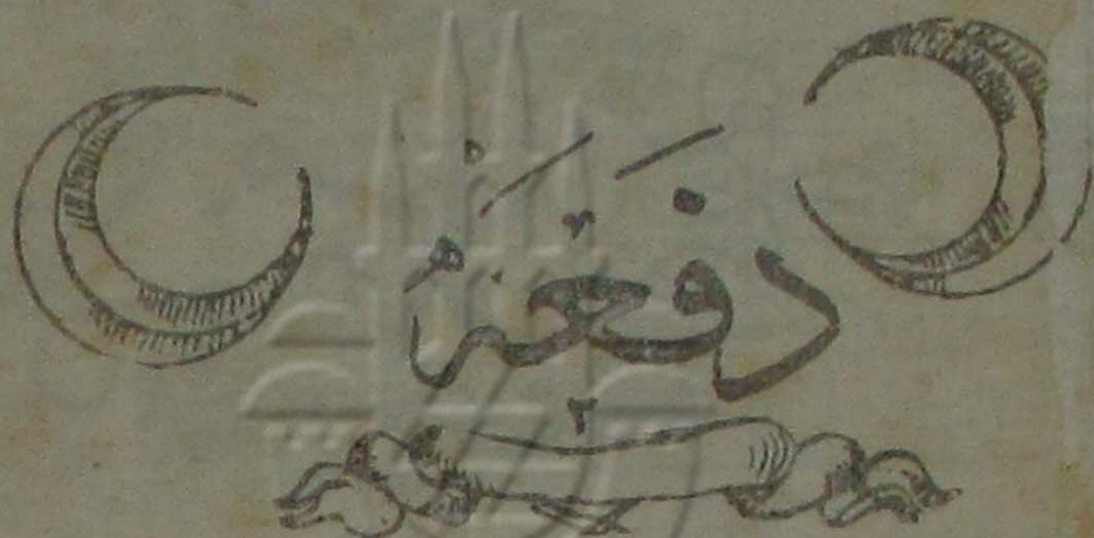 دفعه
٢